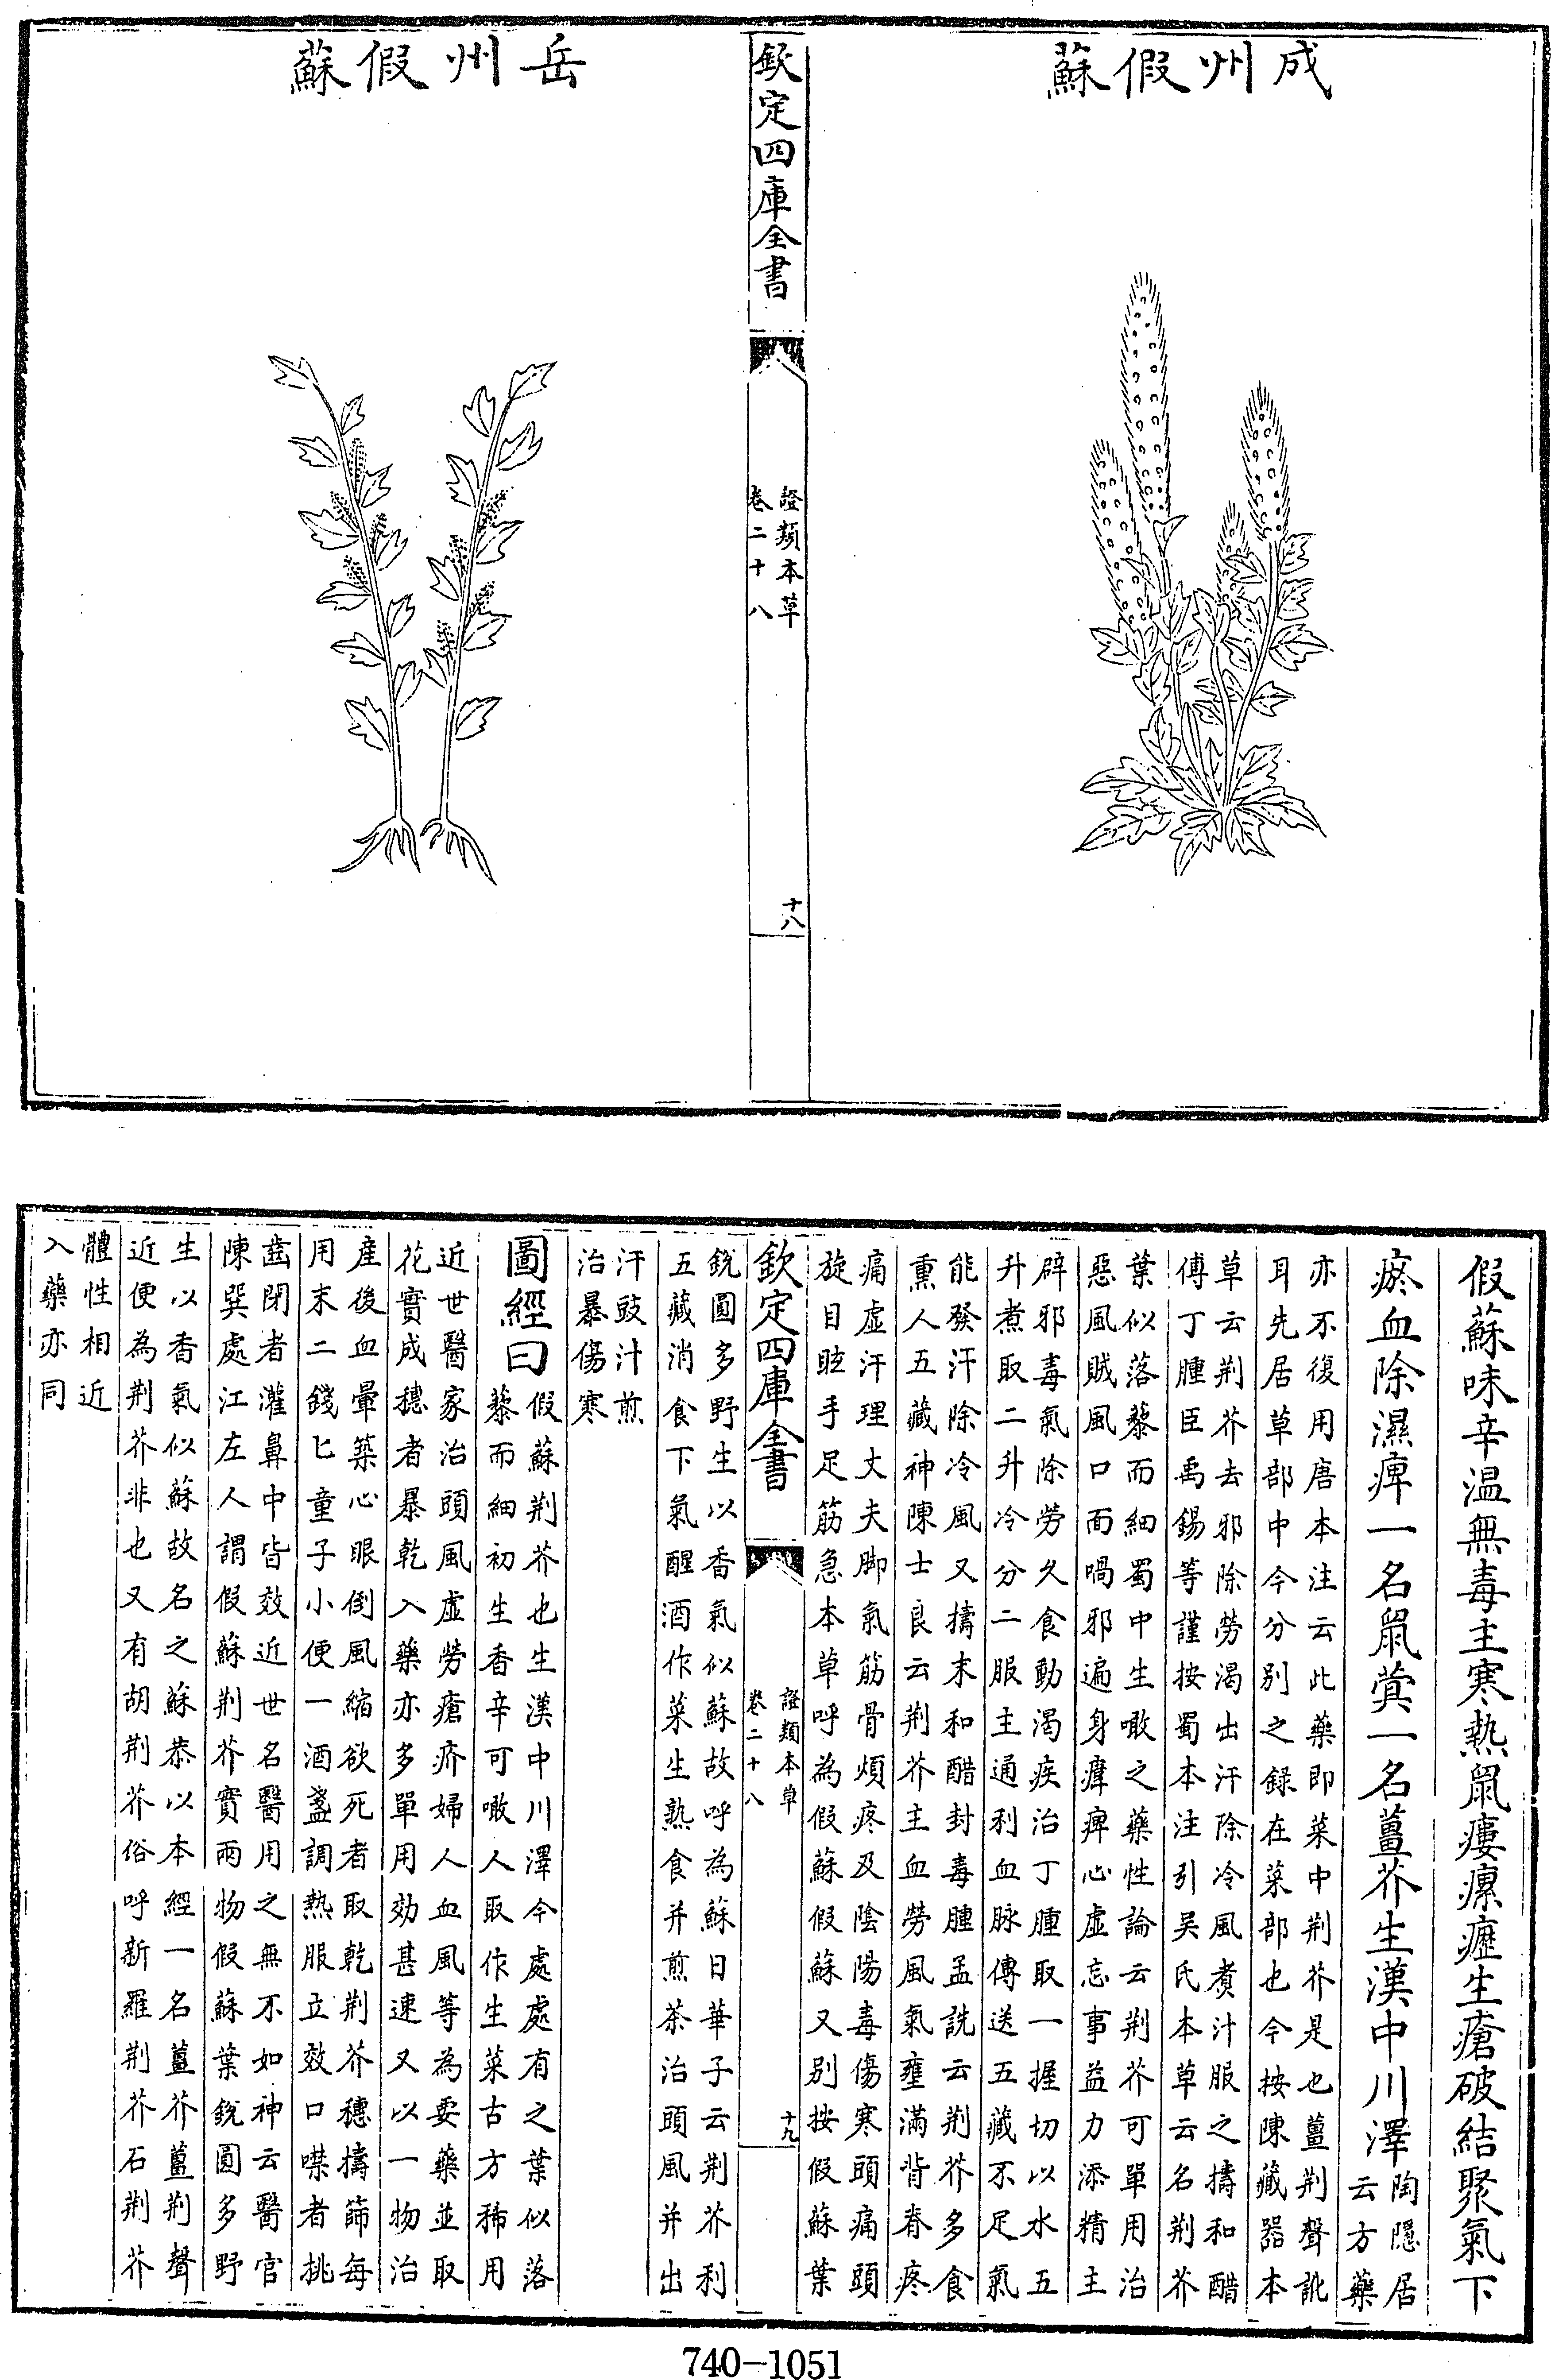 成州假蘇
欽定四庫全書
證類本草
卷二十八
十八
岳州假蘇
假蘇味辛温無毒主寒熱鼠瘻瘰癧生瘡破結聚氣下
瘀血除濕痺一名鼠蓂一名薑芥生漢中川澤
陶隱居
云方藥
亦不復用唐本注云此藥即菜中荆芥是也薑荆聲訛
耳先居草部中今分别之録在菜部也今按陳藏器本
草云荆芥去邪除勞渴出汗除冷風煮汁服之擣和醋
傅丁腫臣禹錫等謹按蜀本注引吴氏本草云名荆芥
葉似落藜而細蜀中生噉之藥性論云荆芥可單用治
惡風賊風口面喎邪遍身𤸷痺心虚忘事益力添精主
辟邪毒氣除勞久食動渴疾治丁腫取一握切以水五
升煮取二升冷分二服主通利血脉傳送五藏不足氣
能發汗除冷風又擣末和醋封毒腫孟詵云荆芥多食
熏人五藏神陳士良云荆芥主血勞風氣壅滿背脊疼
痛虚汗理丈夫脚氣筋骨煩疼及陰陽毒傷寒頭痛頭
旋目眩手足筋急本草呼為假蘇假蘇又别按假蘇葉
欽定四庫全書
證類本草
卷二十八
十九
鋭圓多野生以香氣似蘇故呼為蘇日華子云荆芥利
五藏消食下氣醒酒作菜生熟食并煎茶治頭風并出
汗豉汁煎
治暴傷寒
圖經曰
假蘇荆芥也生漢中川澤今處處有之葉似落
藜而細初生香辛可噉人取作生菜古方稀用
近世醫家治頭風虚勞瘡疥婦人血風等為要藥並取
花實成穗者暴乾入藥亦多單用効甚速又以一物治
産後血暈築心眼倒風縮欲死者取乾荆芥穗擣篩每
用末二錢匕童子小便一酒盞調熱服立效口噤者挑
齒閉者灌鼻中皆效近世名醫用之無不如神云醫官
陳巽處江左人謂假蘇荆芥實兩物假蘇葉鋭圓多野
生以香氣似蘇故名之蘇恭以本經一名薑芥薑荆聲
近便為荆芥非也又有胡荆芥俗呼新羅荆芥石荆芥
體性相近
入藥亦同
740-1051